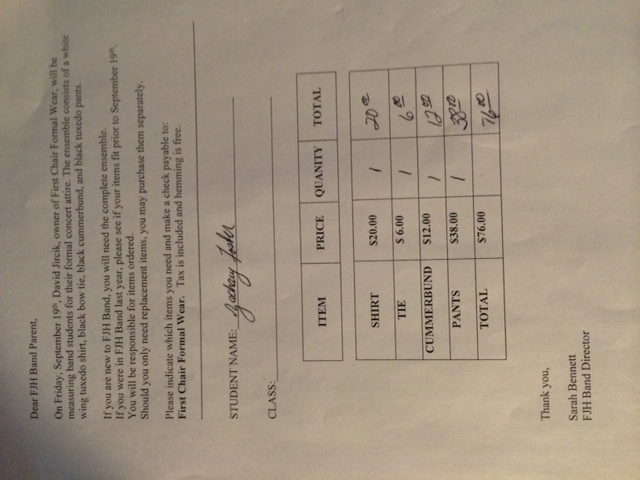 Dear FJH Band Parent,
On Friday, September 19th, David Jircik, owner of First Chair Formal Wear, will be
measuring band students for their formal concert attire. The ensemble consists of a white
wing tuxedo shirt, black bow tie, black cummerbund, and black tuxedo pants.
If you are new to FJH Band, you will need the complete ensemble.
If you were in FJH Band last year, please see if your items fit prior to September 19th.
You will be responsible for items ordered.
Should you only need replacement items, you may purchase them separately.
Please indicate which items you need and make a check payable to:
First Chair Formal Wear. Tax is included and hemming is free.
STUDENT NAME: Zachary Foster
CLASS:
ITEM PRICE QUANITY TOTAL
SHIRT $20.00 1 20 00
TIE $ 6.00 1 6 00
CUMMERBUND $12.00 1 12 00
PANTS $38.00 1 38 00
TOTAL $76.00 76 00
Thank you,
Sarah Bennett
FJH Band Director